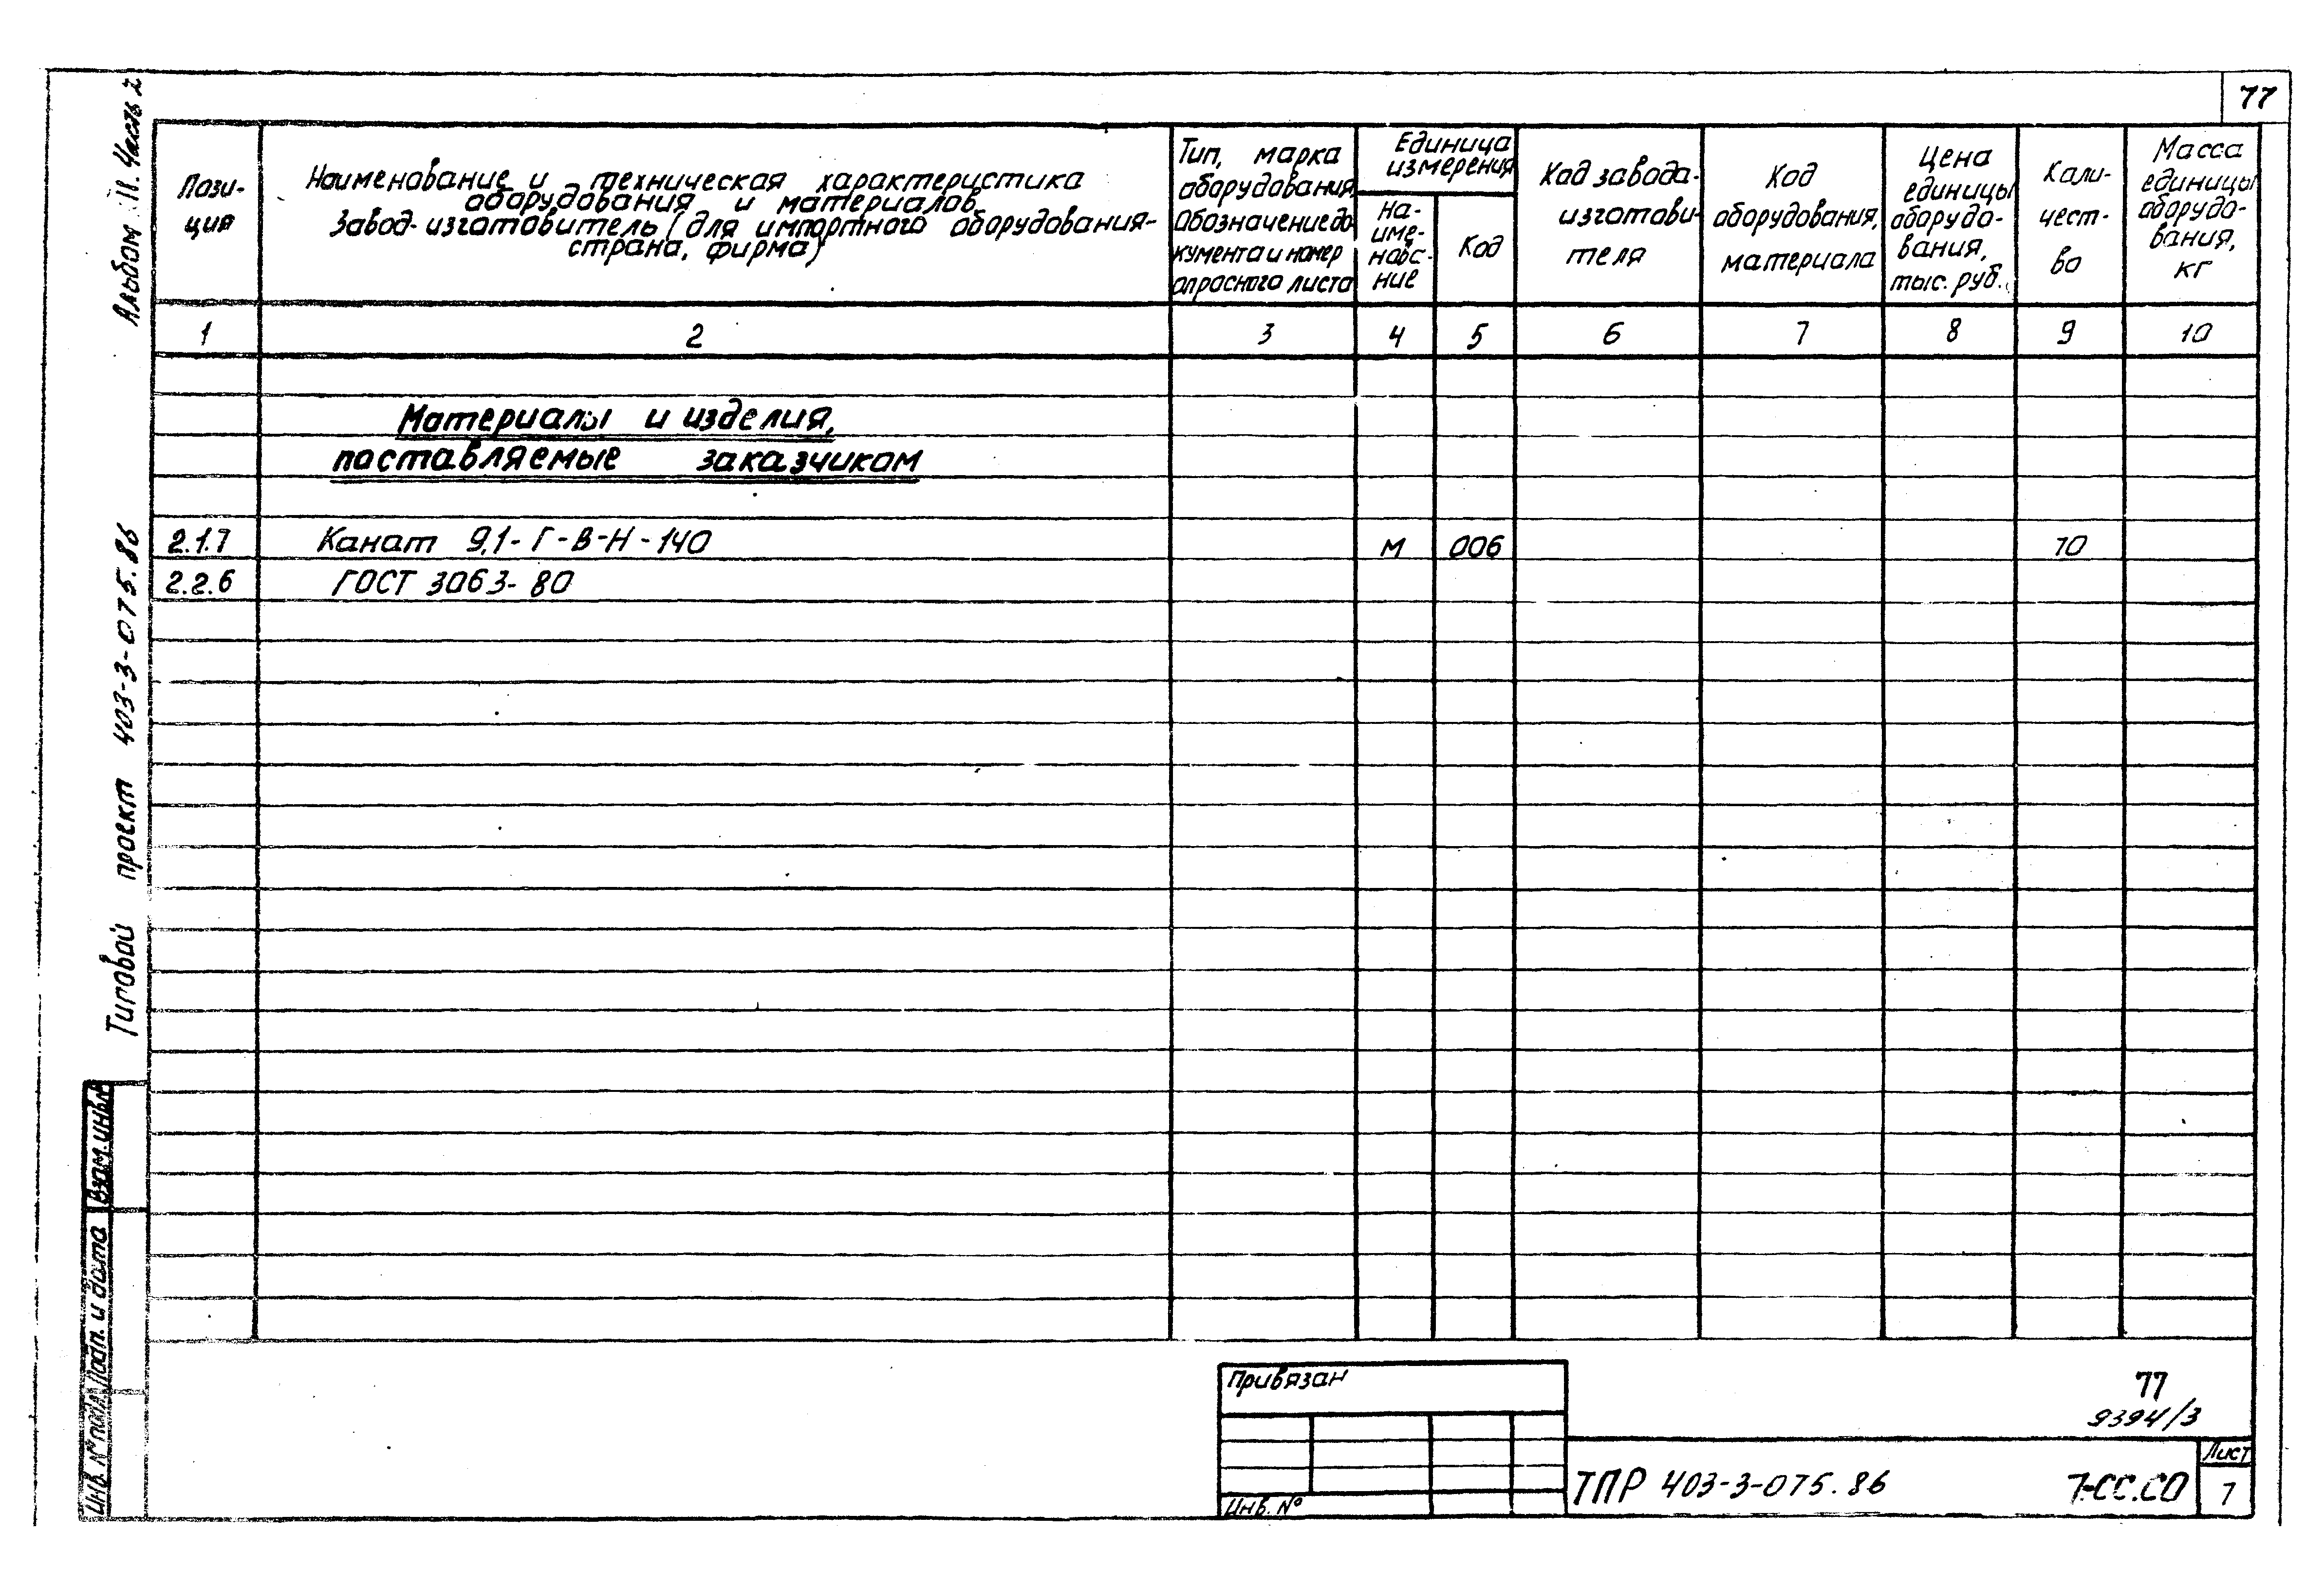 77
Альбом III. Часть 2
Типовой проект 403-3-075.86
Пози-
ция
Наименование и техническая характеристика
оборудования и материалов.
Завод-изготовитель (для импортного оборудования-
страна, фирма)
Тип, марка
оборудования.
Обозначение до-
кумента и номер
опросного листа
Единица
измерения
На-
име-
нова-
ние
Код
Код завода-
изготови-
теля
Код
оборудования,
материала
Цена
единицы
оборудо-
вания,
тыс. руб.
Коли-
чест-
во
Масса
единицы
оборудо-
вания,
кг
1 2 3 4 5 6 7 8 9 10
Материалы и изделия,
поставляемые заказчиком
2.1.7 Канат 9,1-Г-В-Н-140 м 006 10
2.2.6 ГОСТ 3063-80
Взам. инв. №
Подп. и дата
Инв. № подл.
Привязан
Инв. №
77
9394/3
ТПР 403-3-075.86 7-СС.СО
Лист
7